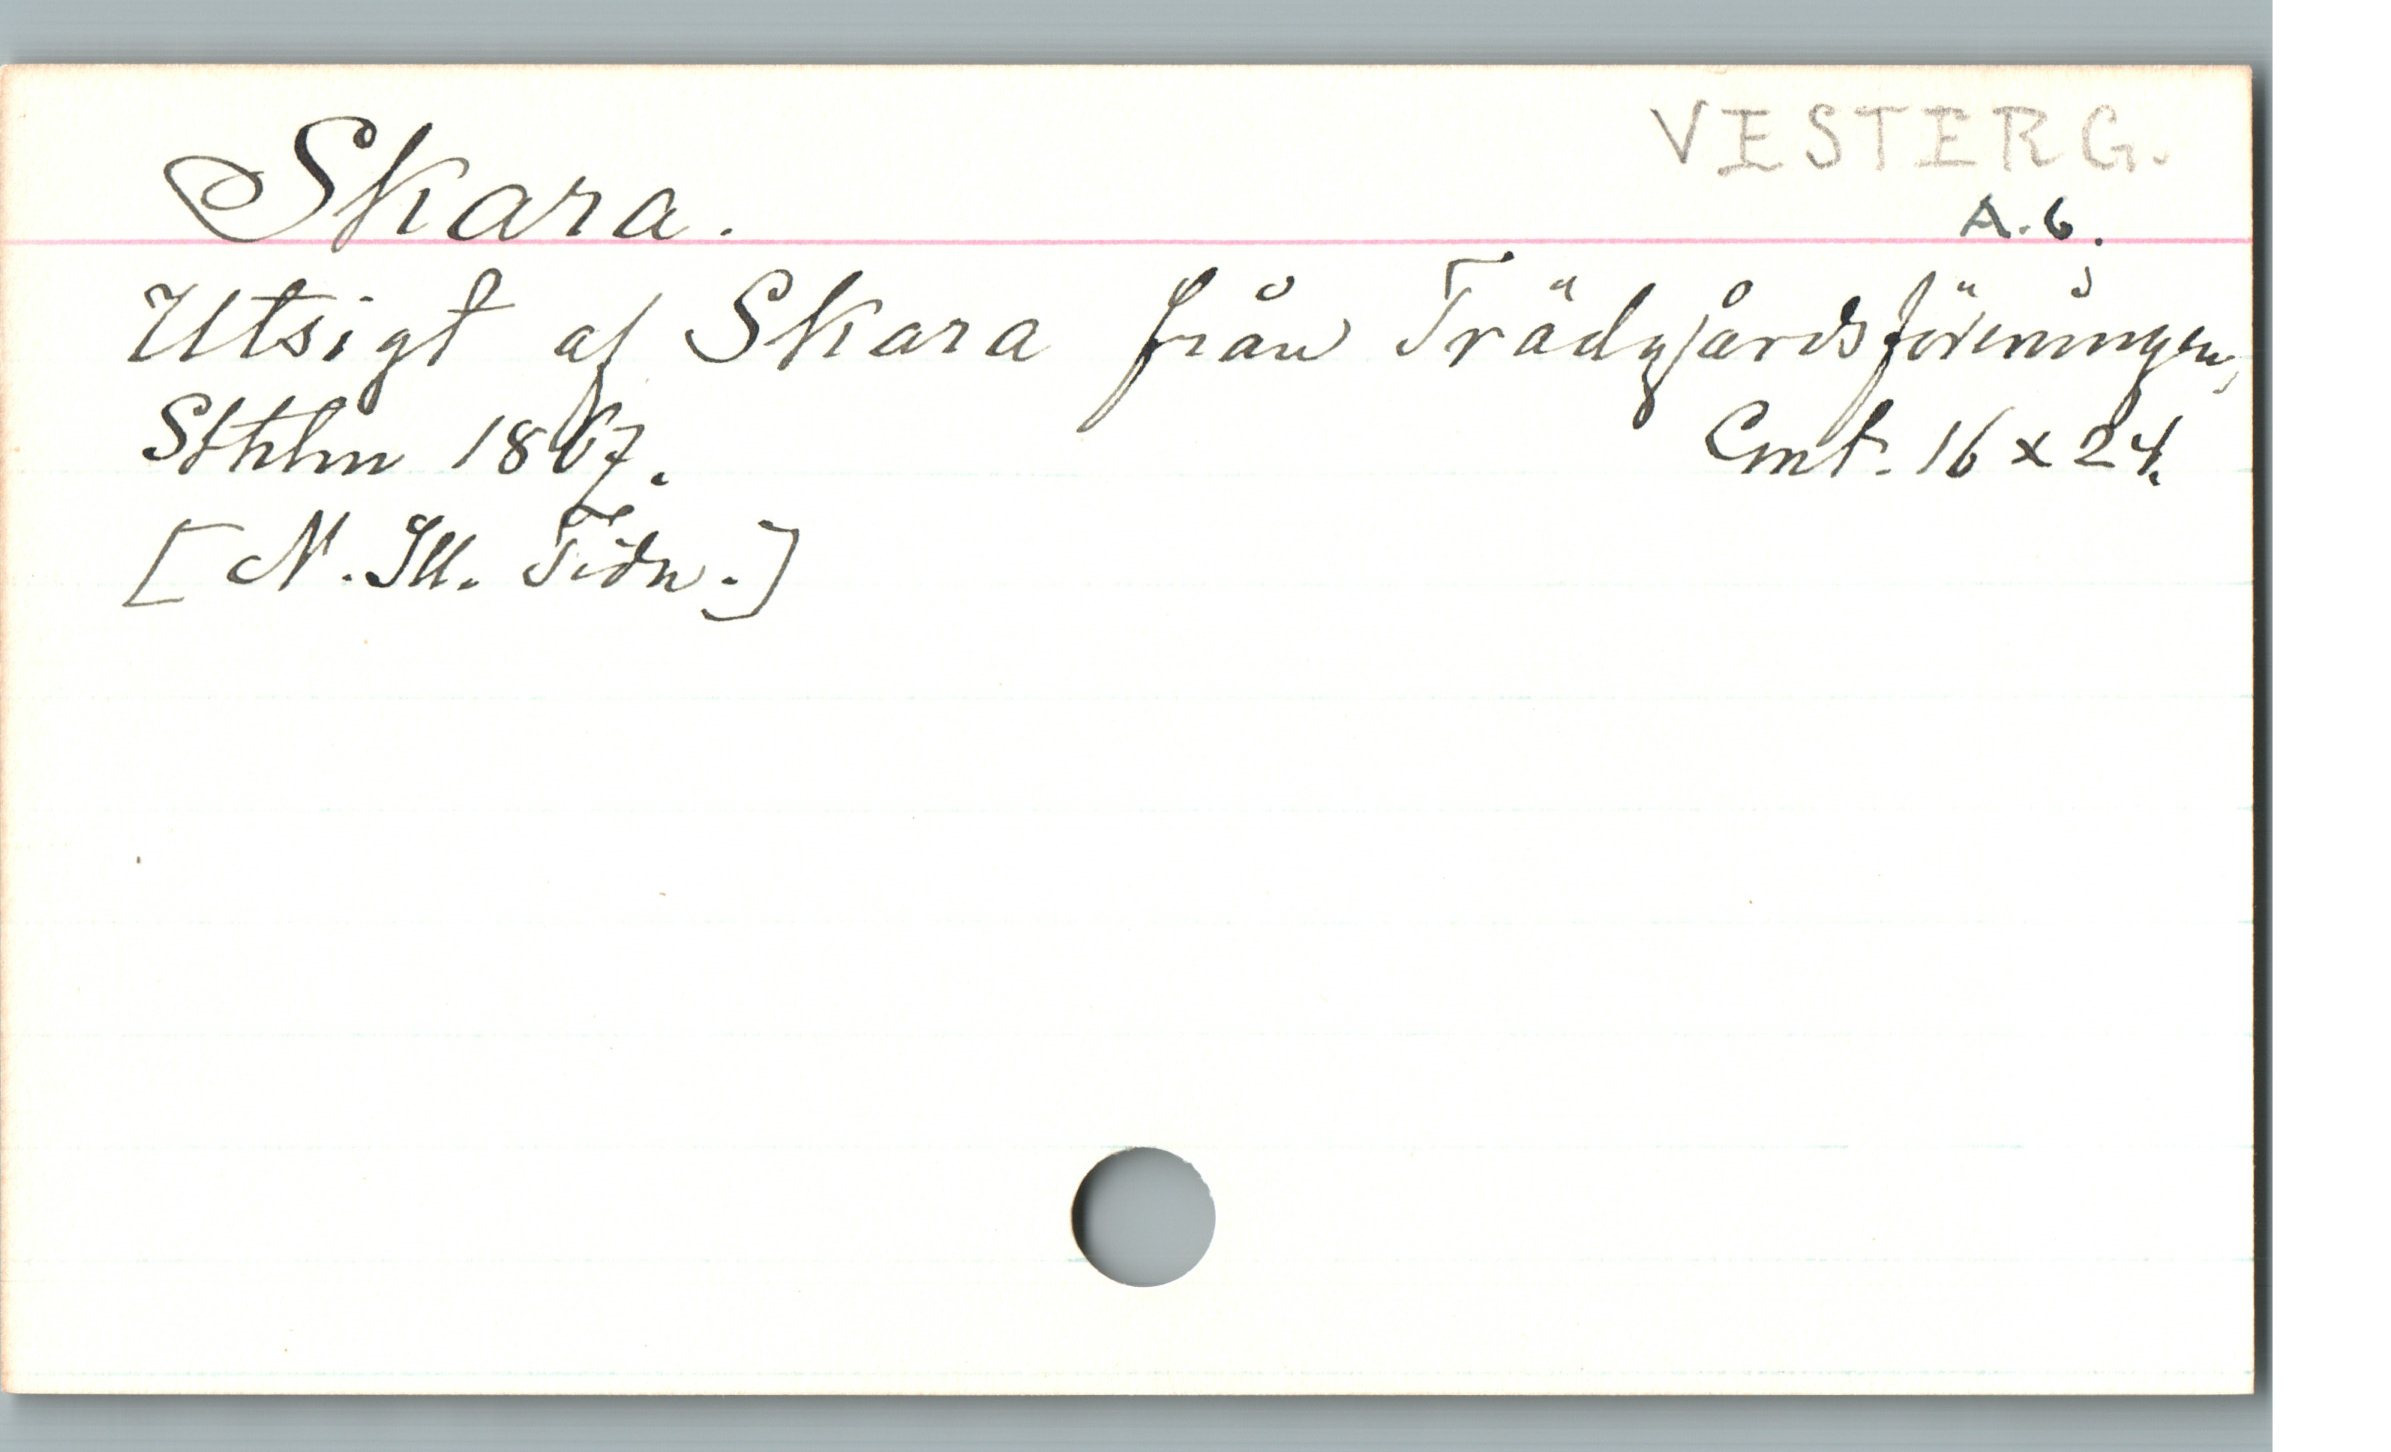 VESTERG.
Skara.
A. 6.
Utsigt af Skara från Trädgårdsföreningen,
Sthlm 1867.
Cmt. 16 x 24.
[N. Ill. Tidn.]